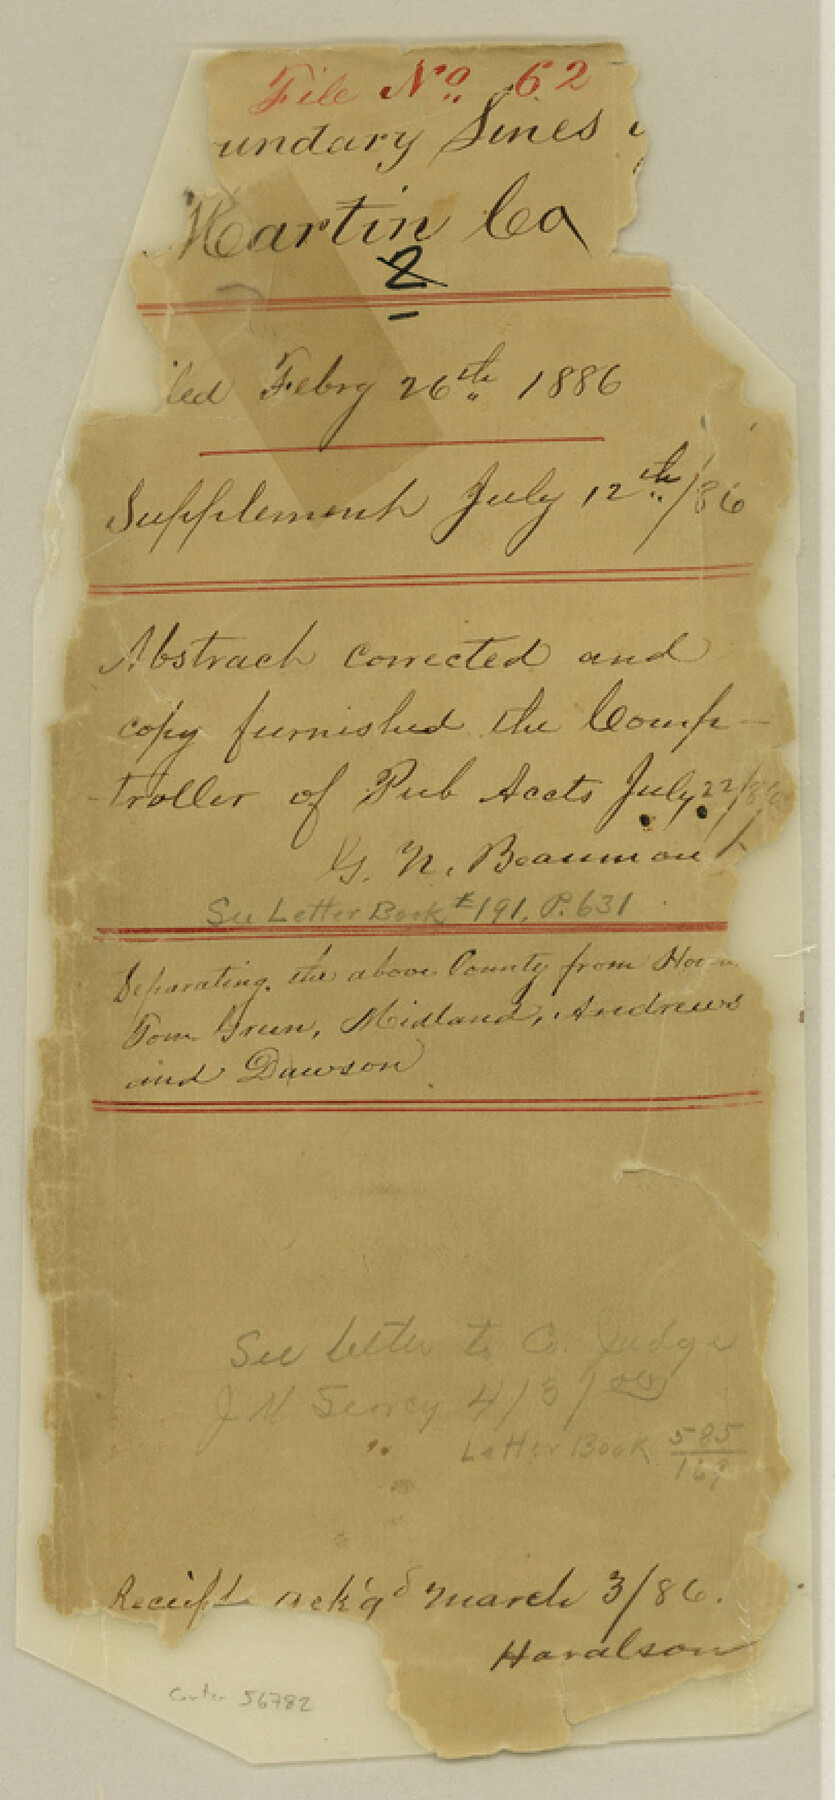 File No. 62
undary Lines
Martin Co
2
led Febry 26th 1886
Supplement July 12th/86
Abstract corrected and
copy furnished the Comp-
troller of Pub Accts July 22/86
G. N. Beaumont
See Letter Book #191, P. 631
Separating the above County from How
Tom Green, Midland, Andrews
and Dawson
See letter to Co. Judge
4/3/
Letter Book 585/169
Receipt ack'gd March 3/86.
Haralson
Counter 56782